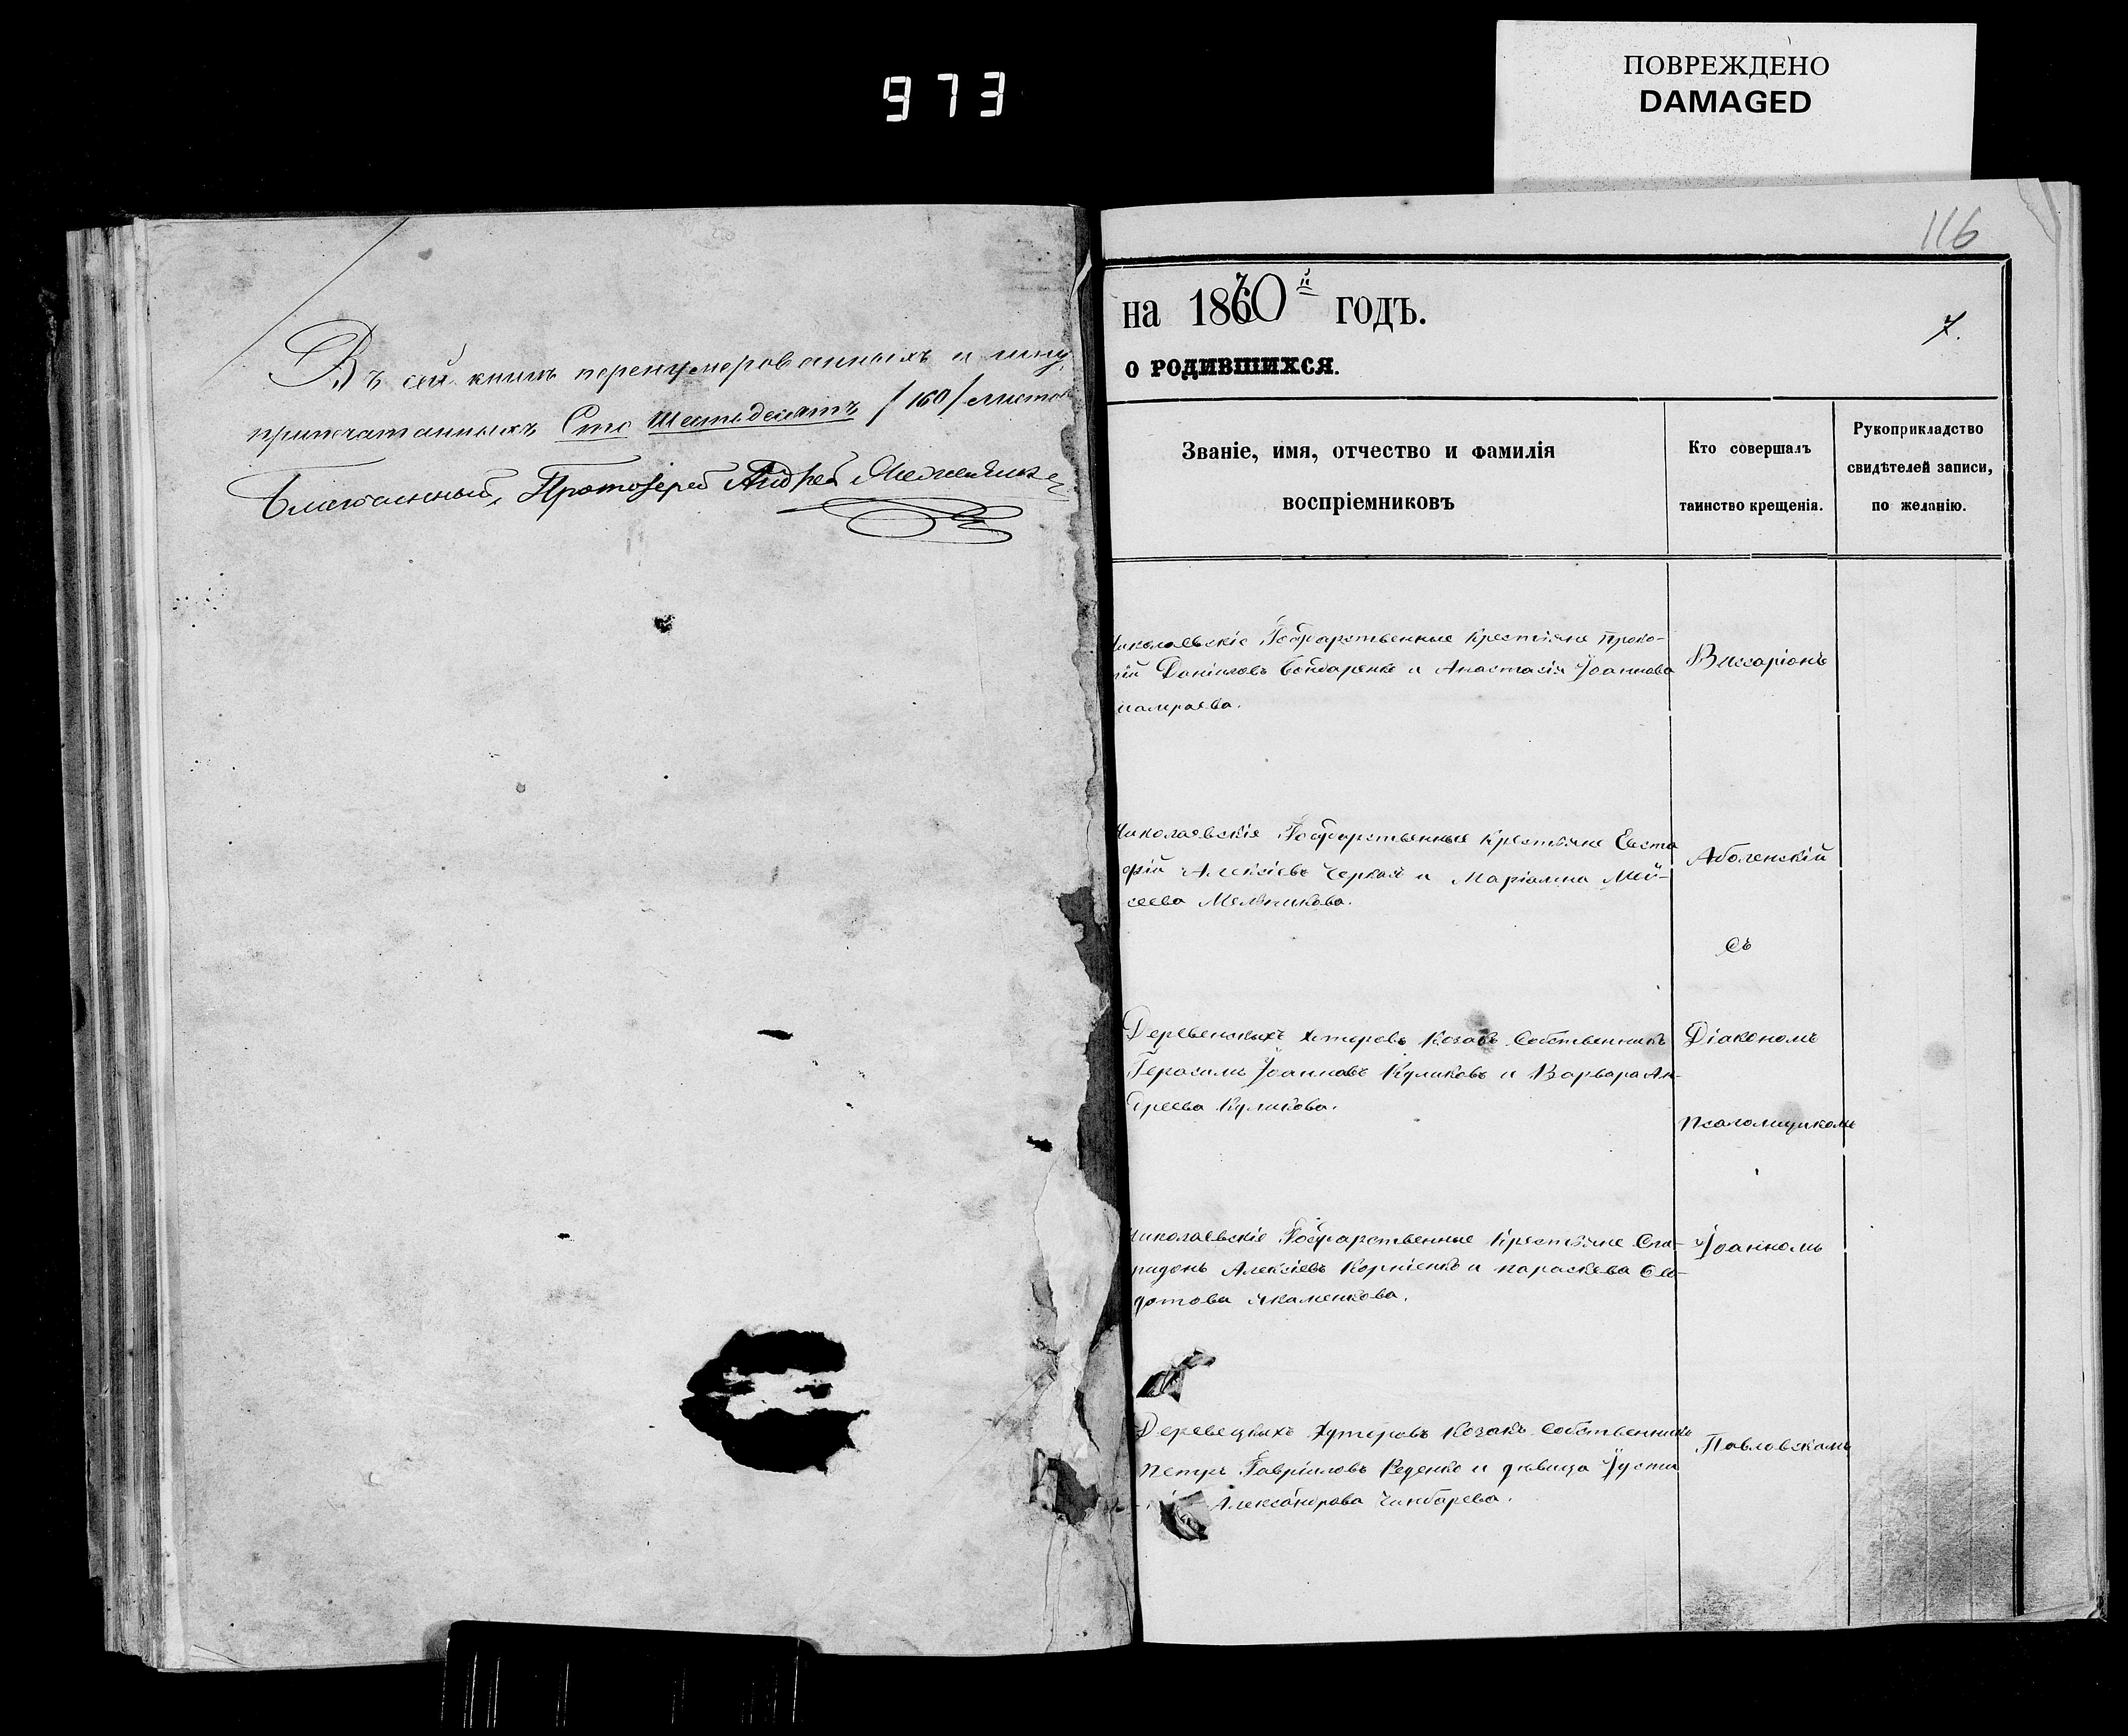 973
ПОВРЕЖДЕНО
DAMAGED
Въ сей книгѣ перенумерованныхъ и шну
припечатанныхъ Сто Шестьдесятъ /160/ листов
Благочинный, Протоіерей Андрей
116
на 1870й годъ.
7.
о родившихся.
Званіе, имя, отчество и фамилія
воспріемниковъ
Кто совершалъ
таинство крещенія.
Рукоприкладство
свидѣтелей записи,
по желанію.
Николаевскіе Государственные Крестьяне Проко-
пій Даниловъ Бондаренко и Анастасія Іоаннова
Виссаріонъ
Николаевскіе Государственные Крестьяне Евста
фій Алексіевъ Черкай и Маріамна Мой-
сеева Мельникова.
Аболенскій
съ
Деревенскихъ хуторовъ Козакъ Собственникъ
Герасимъ Іоанновъ Куликовъ и Варвара Ан-
дреева Куликова.
Діакономъ
Псаломщикомъ
Николаевскіе Государственные Крестьяне Спи-
ридонъ Алексіевъ Корніенко и Параскева Ѳео-
дотова Акаменкова.
Іоанномъ
Деревецкихъ Хуторовъ Козакъ Собственникъ
Петръ Гавріиловъ Реденко и дѣвица Іусти
Александрова Чинбарева.
Павловскимъ